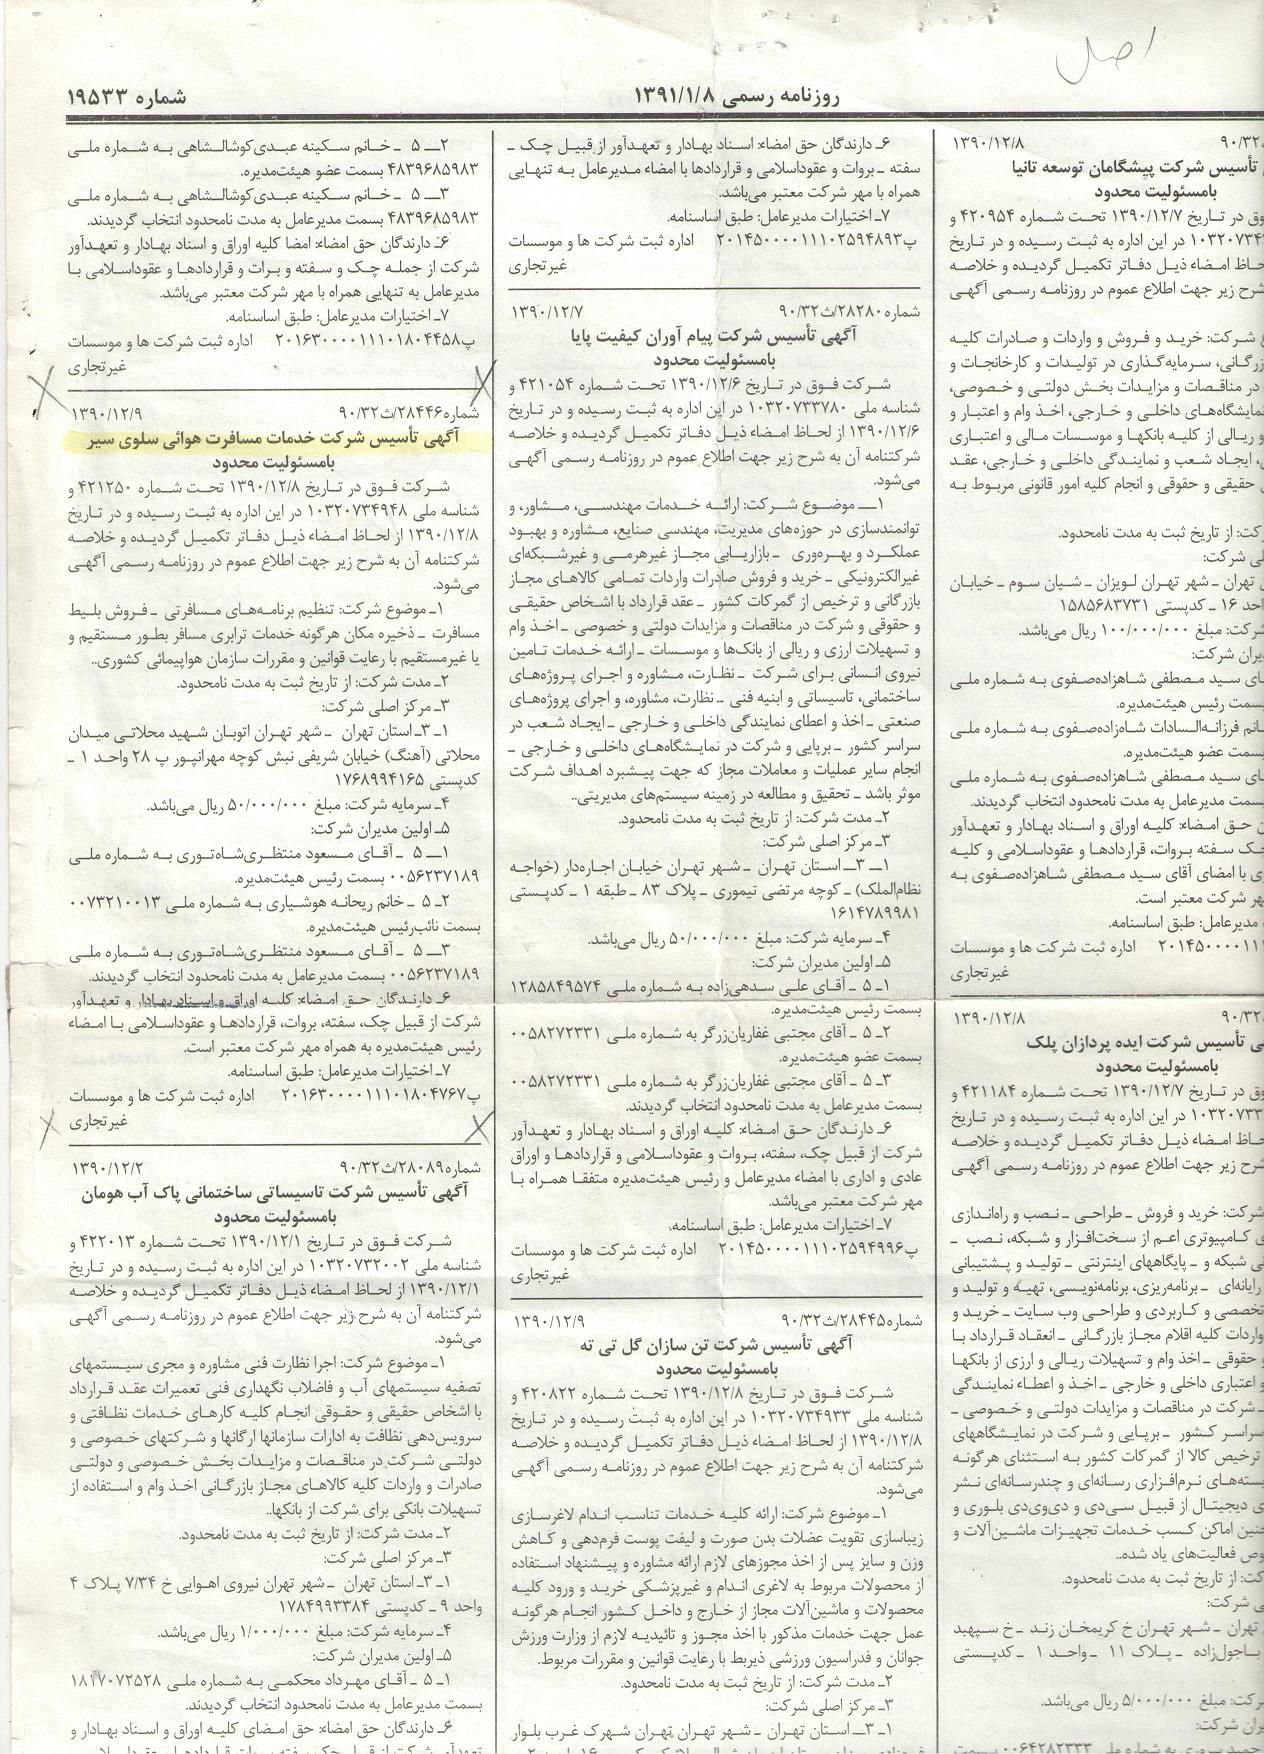 اصل
روزنامه رسمی ۱۳۹۱/۱/۸
شماره ۱۹۵۳۳
۱۳۹۰/۱۲/۸
تأسیس شرکت پیشگامان توسعه تانیا
بامسئولیت محدود
فوق در تاریخ ۱۳۹۰/۱۲/۷ تحت شماره ۴۲۰۹۵۴ و
در این اداره به ثبت رسیده و در تاریخ
لحاظ امضاء ذیل دفاتر تکمیل گردیده و خلاصه
شرح زیر جهت اطلاع عموم در روزنامه رسمی آگهی
شرکت: خرید و فروش و واردات و صادرات کلیه
سرمایه‌گذاری در تولیدات و کارخانجات و
در مناقصات و مزایدات بخش دولتی و خصوصی،
نمایشگاه‌های داخلی و خارجی، اخذ وام و اعتبار و
و ریالی از کلیه بانکها و موسسات مالی و اعتباری
ایجاد شعب و نمایندگی داخلی و خارجی، عقد
حقیقی و حقوقی و انجام کلیه امور قانونی مربوط به
از تاریخ ثبت به مدت نامحدود.
شرکت:
تهران ـ شهر تهران لویزان ـ شیان سوم ـ خیابان
واحد ۱۶ ـ کدپستی ۱۵۸۵۶۸۳۷۳۱
شرکت: مبلغ ۱۰۰/۰۰۰/۰۰۰ ریال می‌باشد.
شرکت:
سید مصطفی شاهزاده‌صفوی به شماره ملی
بسمت رئیس هیئت‌مدیره.
خانم فرزانه‌السادات شاه‌زاده‌صفوی به شماره ملی
بسمت عضو هیئت‌مدیره.
سید مصطفی شاهزاده‌صفوی به شماره ملی
بسمت مدیرعامل به مدت نامحدود انتخاب گردیدند.
حق امضاء: کلیه اوراق و اسناد بهادار و تعهدآور
چک سفته بروات، قراردادها و عقوداسلامی و کلیه
با امضای آقای سید مصطفی شاهزاده‌صفوی به
مهر شرکت معتبر است.
مدیرعامل: طبق اساسنامه.
اداره ثبت شرکت ها و موسسات
غیرتجاری
۱۳۹۰/۱۲/۸
تأسیس شرکت ایده پردازان پلک
بامسئولیت محدود
فوق در تاریخ ۱۳۹۰/۱۲/۷ تحت شماره ۴۲۱۱۸۴ و
در این اداره به ثبت رسیده و در تاریخ
لحاظ امضاء ذیل دفاتر تکمیل گردیده و خلاصه
شرح زیر جهت اطلاع عموم در روزنامه رسمی آگهی
شرکت: خرید و فروش ـ طراحی ـ نصب و راه‌اندازی
کامپیوتری اعم از سخت‌افزار و شبکه، نصب ـ
شبکه و ـ پایگاههای اینترنتی ـ تولید و پشتیبانی
رایانه‌ای ـ برنامه‌ریزی، برنامه‌نویسی، تهیه و تولید و
تخصصی و کاربردی و طراحی وب سایت ـ خرید و
واردات کلیه اقلام مجاز بازرگانی ـ انعقاد قرارداد با
و حقوقی ـ اخذ وام و تسهیلات ریالی و ارزی از بانکها
و اعتباری داخلی و خارجی ـ اخذ و اعطاء نمایندگی
ـ شرکت در مناقصات و مزایدات دولتی و خصوصی ـ
سراسر کشور ـ برپایی و شرکت در نمایشگاههای
ترخیص کالا از گمرکات کشور به استثنای هرگونه
بسته‌های نرم‌افزاری رسانه‌ای و چندرسانه‌ای نشر
دیجیتال از قبیل سی‌دی و دی‌وی‌دی بلوری و
اماکن کسب خدمات تجهیزات ماشین‌آلات و
فعالیت‌های یاد شده..
از تاریخ ثبت به مدت نامحدود.
شرکت:
تهران ـ شهر تهران خ کریمخان زند ـ خ سپهبد
ـ پلاک ۱۱ ـ واحد ۱ ـ کدپستی
مبلغ ۵/۰۰۰/۰۰۰ ریال می‌باشد.
شرکت:
به شماره ملی ۰۰۶۴۲۸۲۳۳۳ بسمت
۶ـ دارندگان حق امضاء: اسناد بهادار و تعهدآور از قبیل چک ـ
سفته ـ بروات و عقوداسلامی و قراردادها با امضاء مدیرعامل به تنهایی
همراه با مهر شرکت معتبر می‌باشد.
۷ـ اختیارات مدیرعامل: طبق اساسنامه.
پ۲۰۱۴۵۰۰۰۰۱۱۱۰۲۵۹۴۸۹۳ اداره ثبت شرکت ها و موسسات
غیرتجاری
شماره۲۸۲۸۰/ث۹۰/۳۲ ۱۳۹۰/۱۲/۷
آگهی تأسیس شرکت پیام آوران کیفیت پایا
بامسئولیت محدود
شرکت فوق در تاریخ ۱۳۹۰/۱۲/۶ تحت شماره ۴۲۱۰۵۴ و
شناسه ملی ۱۰۳۲۰۷۳۳۷۸۰ در این اداره به ثبت رسیده و در تاریخ
۱۳۹۰/۱۲/۶ از لحاظ امضاء ذیل دفاتر تکمیل گردیده و خلاصه
شرکتنامه آن به شرح زیر جهت اطلاع عموم در روزنامه رسمی آگهی
می‌شود.
۱ـ موضوع شرکت: ارائه خدمات مهندسی، مشاور، و
توانمندسازی در حوزه‌های مدیریت، مهندسی صنایع، مشاوره و بهبود
عملکرد و بهره‌وری ـ بازاریابی مجاز غیرهرمی و غیرشبکه‌ای
غیرالکترونیکی ـ خرید و فروش صادرات واردات تمامی کالاهای مجاز
بازرگانی و ترخیص از گمرکات کشور ـ عقد قرارداد با اشخاص حقیقی
و حقوقی و شرکت در مناقصات و مزایدات دولتی و خصوصی ـ اخذ وام
و تسهیلات ارزی و ریالی از بانک‌ها و موسسات ـ ارائه خدمات تامین
نیروی انسانی برای شرکت ـ نظارت، مشاوره و اجرای پروژه‌های
ساختمانی، تاسیساتی و ابنیه فنی ـ نظارت، مشاوره، و اجرای پروژه‌های
صنعتی ـ اخذ و اعطای نمایندگی داخلی و خارجی ـ ایجاد شعب در
سراسر کشور ـ برپایی و شرکت در نمایشگاه‌های داخلی و خارجی ـ
انجام سایر عملیات و معاملات مجاز که جهت پیشبرد اهداف شرکت
موثر باشد ـ تحقیق و مطالعه در زمینه سیستم‌های مدیریتی..
۲ـ مدت شرکت: از تاریخ ثبت به مدت نامحدود.
۳ـ مرکز اصلی شرکت:
۱ـ ۳ـ استان تهران ـ شهر تهران خیابان اجاره‌دار (خواجه
نظام‌الملک) ـ کوچه مرتضی تیموری ـ پلاک ۸۳ ـ طبقه ۱ ـ کدپستی
۱۶۱۴۷۸۹۹۸۱
۴ـ سرمایه شرکت: مبلغ ۵۰/۰۰۰/۰۰۰ ریال می‌باشد.
۵ـ اولین مدیران شرکت:
۱ـ ۵ ـ آقای علی سدهی‌زاده به شماره ملی ۱۲۸۵۸۴۹۵۷۴
بسمت رئیس هیئت‌مدیره.
۲ـ ۵ ـ آقای مجتبی غفاریان‌زرگر به شماره ملی ۰۰۵۸۲۷۲۳۳۱
بسمت عضو هیئت‌مدیره.
۳ـ ۵ ـ آقای مجتبی غفاریان‌زرگر به شماره ملی ۰۰۵۸۲۷۲۳۳۱
بسمت مدیرعامل به مدت نامحدود انتخاب گردیدند.
۶ـ دارندگان حق امضاء: کلیه اوراق و اسناد بهادار و تعهدآور
شرکت از قبیل چک، سفته، بروات و عقوداسلامی و قراردادها و اوراق
عادی و اداری با امضاء مدیرعامل و رئیس هیئت‌مدیره متفقا همراه با
مهر شرکت معتبر می‌باشد.
۷ـ اختیارات مدیرعامل: طبق اساسنامه.
پ۲۰۱۴۵۰۰۰۰۱۱۱۰۲۵۹۴۹۹۶ اداره ثبت شرکت ها و موسسات
غیرتجاری
شماره۲۸۴۴۵/ث۹۰/۳۲ ۱۳۹۰/۱۲/۹
آگهی تأسیس شرکت تن سازان گل تی ته
بامسئولیت محدود
شرکت فوق در تاریخ ۱۳۹۰/۱۲/۸ تحت شماره ۴۲۰۸۲۲ و
شناسه ملی ۱۰۳۲۰۷۳۴۹۳۳ در این اداره به ثبت رسیده و در تاریخ
۱۳۹۰/۱۲/۸ از لحاظ امضاء ذیل دفاتر تکمیل گردیده و خلاصه
شرکتنامه آن به شرح زیر جهت اطلاع عموم در روزنامه رسمی آگهی
می‌شود.
۱ـ موضوع شرکت: ارائه کلیه خدمات تناسب اندام لاغرسازی
زیباسازی تقویت عضلات بدن صورت و لیفت پوست فرم‌دهی و کاهش
وزن و سایز پس از اخذ مجوزهای لازم ارائه مشاوره و پیشنهاد استفاده
از محصولات مربوط به لاغری اندام و غیرپزشکی خرید و ورود کلیه
محصولات و ماشین‌آلات مجاز از خارج و داخل کشور انجام هرگونه
عمل جهت خدمات مذکور با اخذ مجوز و تائیدیه لازم از وزارت ورزش
جوانان و فدراسیون ورزشی ذیربط با رعایت قوانین و مقررات مربوط.
۲ـ مدت شرکت: از تاریخ ثبت به مدت نامحدود.
۳ـ مرکز اصلی شرکت:
۱ـ ۳ـ استان تهران ـ شهر تهران تهران شهرک غرب بلوار
۲ـ ۵ ـ خانم سکینه عبدی‌کوشالشاهی به شماره ملی
۴۸۳۹۶۸۵۹۸۳ بسمت عضو هیئت‌مدیره.
۳ـ ۵ ـ خانم سکینه عبدی‌کوشالشاهی به شماره ملی
۴۸۳۹۶۸۵۹۸۳ بسمت مدیرعامل به مدت نامحدود انتخاب گردیدند.
۶ـ دارندگان حق امضاء: امضا کلیه اوراق و اسناد بهادار و تعهدآور
شرکت از جمله چک و سفته و برات و قراردادها و عقوداسلامی با
مدیرعامل به تنهایی همراه با مهر شرکت معتبر می‌باشد.
۷ـ اختیارات مدیرعامل: طبق اساسنامه.
پ۲۰۱۶۳۰۰۰۰۱۱۱۰۱۸۰۴۴۵۸ اداره ثبت شرکت ها و موسسات
غیرتجاری
شماره۲۸۴۴۶/ث۹۰/۳۲ ۱۳۹۰/۱۲/۹
آگهی تأسیس شرکت خدمات مسافرت هوائی سلوی سیر
بامسئولیت محدود
شرکت فوق در تاریخ ۱۳۹۰/۱۲/۸ تحت شماره ۴۲۱۲۵۰ و
شناسه ملی ۱۰۳۲۰۷۳۴۹۴۸ در این اداره به ثبت رسیده و در تاریخ
۱۳۹۰/۱۲/۸ از لحاظ امضاء ذیل دفاتر تکمیل گردیده و خلاصه
شرکتنامه آن به شرح زیر جهت اطلاع عموم در روزنامه رسمی آگهی
می‌شود.
۱ـ موضوع شرکت: تنظیم برنامه‌های مسافرتی ـ فروش بلیط
مسافرت ـ ذخیره مکان هرگونه خدمات ترابری مسافر بطور مستقیم و
یا غیرمستقیم با رعایت قوانین و مقررات سازمان هواپیمائی کشوری..
۲ـ مدت شرکت: از تاریخ ثبت به مدت نامحدود.
۳ـ مرکز اصلی شرکت:
۱ـ ۳ـ استان تهران ـ شهر تهران اتوبان شهید محلاتی میدان
محلاتی (آهنگ) خیابان شریفی نبش کوچه مهرانپور پ ۲۸ واحد ۱ ـ
کدپستی ۱۷۶۸۹۹۴۱۶۵
۴ـ سرمایه شرکت: مبلغ ۵۰/۰۰۰/۰۰۰ ریال می‌باشد.
۵ـ اولین مدیران شرکت:
۱ـ ۵ ـ آقای مسعود منتظری‌شاه‌توری به شماره ملی
۰۰۵۶۲۳۷۱۸۹ بسمت رئیس هیئت‌مدیره.
۲ـ ۵ ـ خانم ریحانه هوشیاری به شماره ملی ۰۰۷۳۲۱۰۰۱۳
بسمت نائب‌رئیس هیئت‌مدیره.
۳ـ ۵ ـ آقای مسعود منتظری‌شاه‌توری به شماره ملی
۰۰۵۶۲۳۷۱۸۹ بسمت مدیرعامل به مدت نامحدود انتخاب گردیدند.
۶ـ دارندگان حق امضاء: کلیه اوراق و اسناد بهادار و تعهدآور
شرکت از قبیل چک، سفته، بروات، قراردادها و عقوداسلامی با امضاء
رئیس هیئت‌مدیره به همراه مهر شرکت معتبر است.
۷ـ اختیارات مدیرعامل: طبق اساسنامه.
پ۲۰۱۶۳۰۰۰۰۱۱۱۰۱۸۰۴۷۶۷ اداره ثبت شرکت ها و موسسات
غیرتجاری
شماره۲۸۰۸۹/ث۹۰/۳۲ ۱۳۹۰/۱۲/۲
آگهی تأسیس شرکت تاسیساتی ساختمانی پاک آب هومان
بامسئولیت محدود
شرکت فوق در تاریخ ۱۳۹۰/۱۲/۱ تحت شماره ۴۲۲۰۱۳ و
شناسه ملی ۱۰۳۲۰۷۳۲۰۰۲ در این اداره به ثبت رسیده و در تاریخ
۱۳۹۰/۱۲/۱ از لحاظ امضاء ذیل دفاتر تکمیل گردیده و خلاصه
شرکتنامه آن به شرح زیر جهت اطلاع عموم در روزنامه رسمی آگهی
می‌شود.
۱ـ موضوع شرکت: اجرا نظارت فنی مشاوره و مجری سیستمهای
تصفیه سیستمهای آب و فاضلاب نگهداری فنی تعمیرات عقد قرارداد
با اشخاص حقیقی و حقوقی انجام کلیه کارهای خدمات نظافتی و
سرویس‌دهی نظافت به ادارات سازمانها ارگانها و شرکتهای خصوصی و
دولتی شرکت در مناقصات و مزایدات بخش خصوصی و دولتی
صادرات و واردات کلیه کالاهای مجاز بازرگانی اخذ وام و استفاده از
تسهیلات بانکی برای شرکت از بانکها..
۲ـ مدت شرکت: از تاریخ ثبت به مدت نامحدود.
۳ـ مرکز اصلی شرکت:
۱ـ ۳ـ استان تهران ـ شهر تهران نیروی اهوایی خ ۷/۳۴ پلاک ۴
واحد ۹ ـ کدپستی ۱۷۸۴۹۹۳۳۸۴
۴ـ سرمایه شرکت: مبلغ ۱/۰۰۰/۰۰۰ ریال می‌باشد.
۵ـ اولین مدیران شرکت:
۱ـ ۵ ـ آقای مهرداد محکمی به شماره ملی ۱۸۱۷۰۷۲۵۲۸
بسمت مدیرعامل به مدت نامحدود انتخاب گردیدند.
۶ـ دارندگان حق امضاء: حق امضای کلیه اوراق و اسناد بهادار و
تعهدآور شرکت از قبیل چک سفته بروات قراردادها و عقوداسلامی